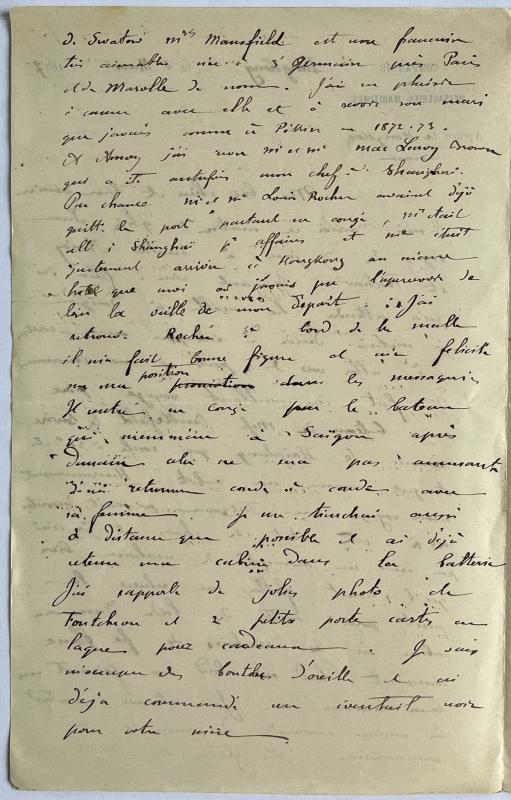 de Swatow Mrs Mansfield est une française
très aimable née à St Germain près Paris
et de Marolle de nom. J'ai eu plaisir
à causer avec elle et à revoir son mari
que j'avais connu à Pékin en 1872-73.
A Amoy j'ai revu Mr et Me Mac Leavy Brown
qui a été autrefois mon chef à Shanghaï.
Par chance Mr et Me Louis Rocher avaient déjà
quitté le port partant en congé, Mr était
allé à Shanghaï pr affaires et Me était
justement arrivée à Hongkong au même
hotel que moi où j'avais pu l'apercevoir de
loin la veille de mon départ. J'ai
retrouvé Rocher à bord de la malle
il m'a fait bonne figure et m'a félicité
sur ma position dans les messageries
Il rentre en congé par le bateau
qui m'emmène à Saïgon après
demain cela ne sera pas amusant
d'être retrouver coude à coude avec
sa femme. Je me tiendrai aussi
à distance que possible et ai déjà
retenu ma cabine dans la batterie
J'ai rapporté de jolies photo de
Foutcheou et 2 petits porte cartes en
laque pour cadeaux. Je suis
des boucles d'oreille et ai
déjà commandé un éventail noir
pour votre mère.